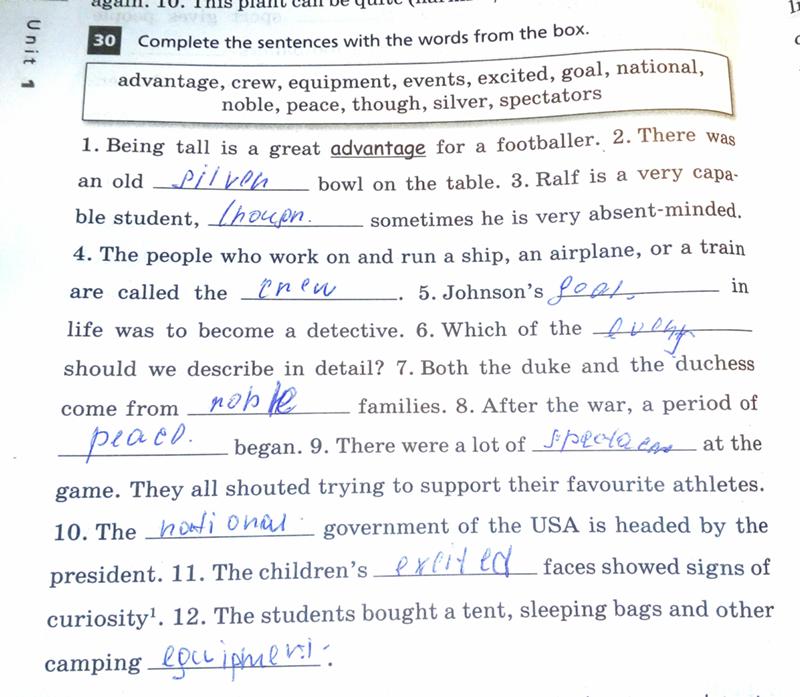 again. 10. This plant can be quite
Unit 1
30 Complete the sentences with the words from the box.
advantage, crew, equipment, events, excited, goal, national,
noble, peace, though, silver, spectators
1. Being tall is a great advantage for a footballer. 2. There was
an old silver bowl on the table. 3. Ralf is a very capa-
ble student, sometimes he is very absent-minded.
4. The people who work on and run a ship, an airplane, or a train
are called the crew. 5. Johnson's goal in
life was to become a detective. 6. Which of the
should we describe in detail? 7. Both the duke and the duchess
come from noble families. 8. After the war, a period of
peace. began. 9. There were a lot of at the
game. They all shouted trying to support their favourite athletes.
10. The national government of the USA is headed by the
president. 11. The children's excited faces showed signs of
curiosity¹. 12. The students bought a tent, sleeping bags and other
camping equipment.